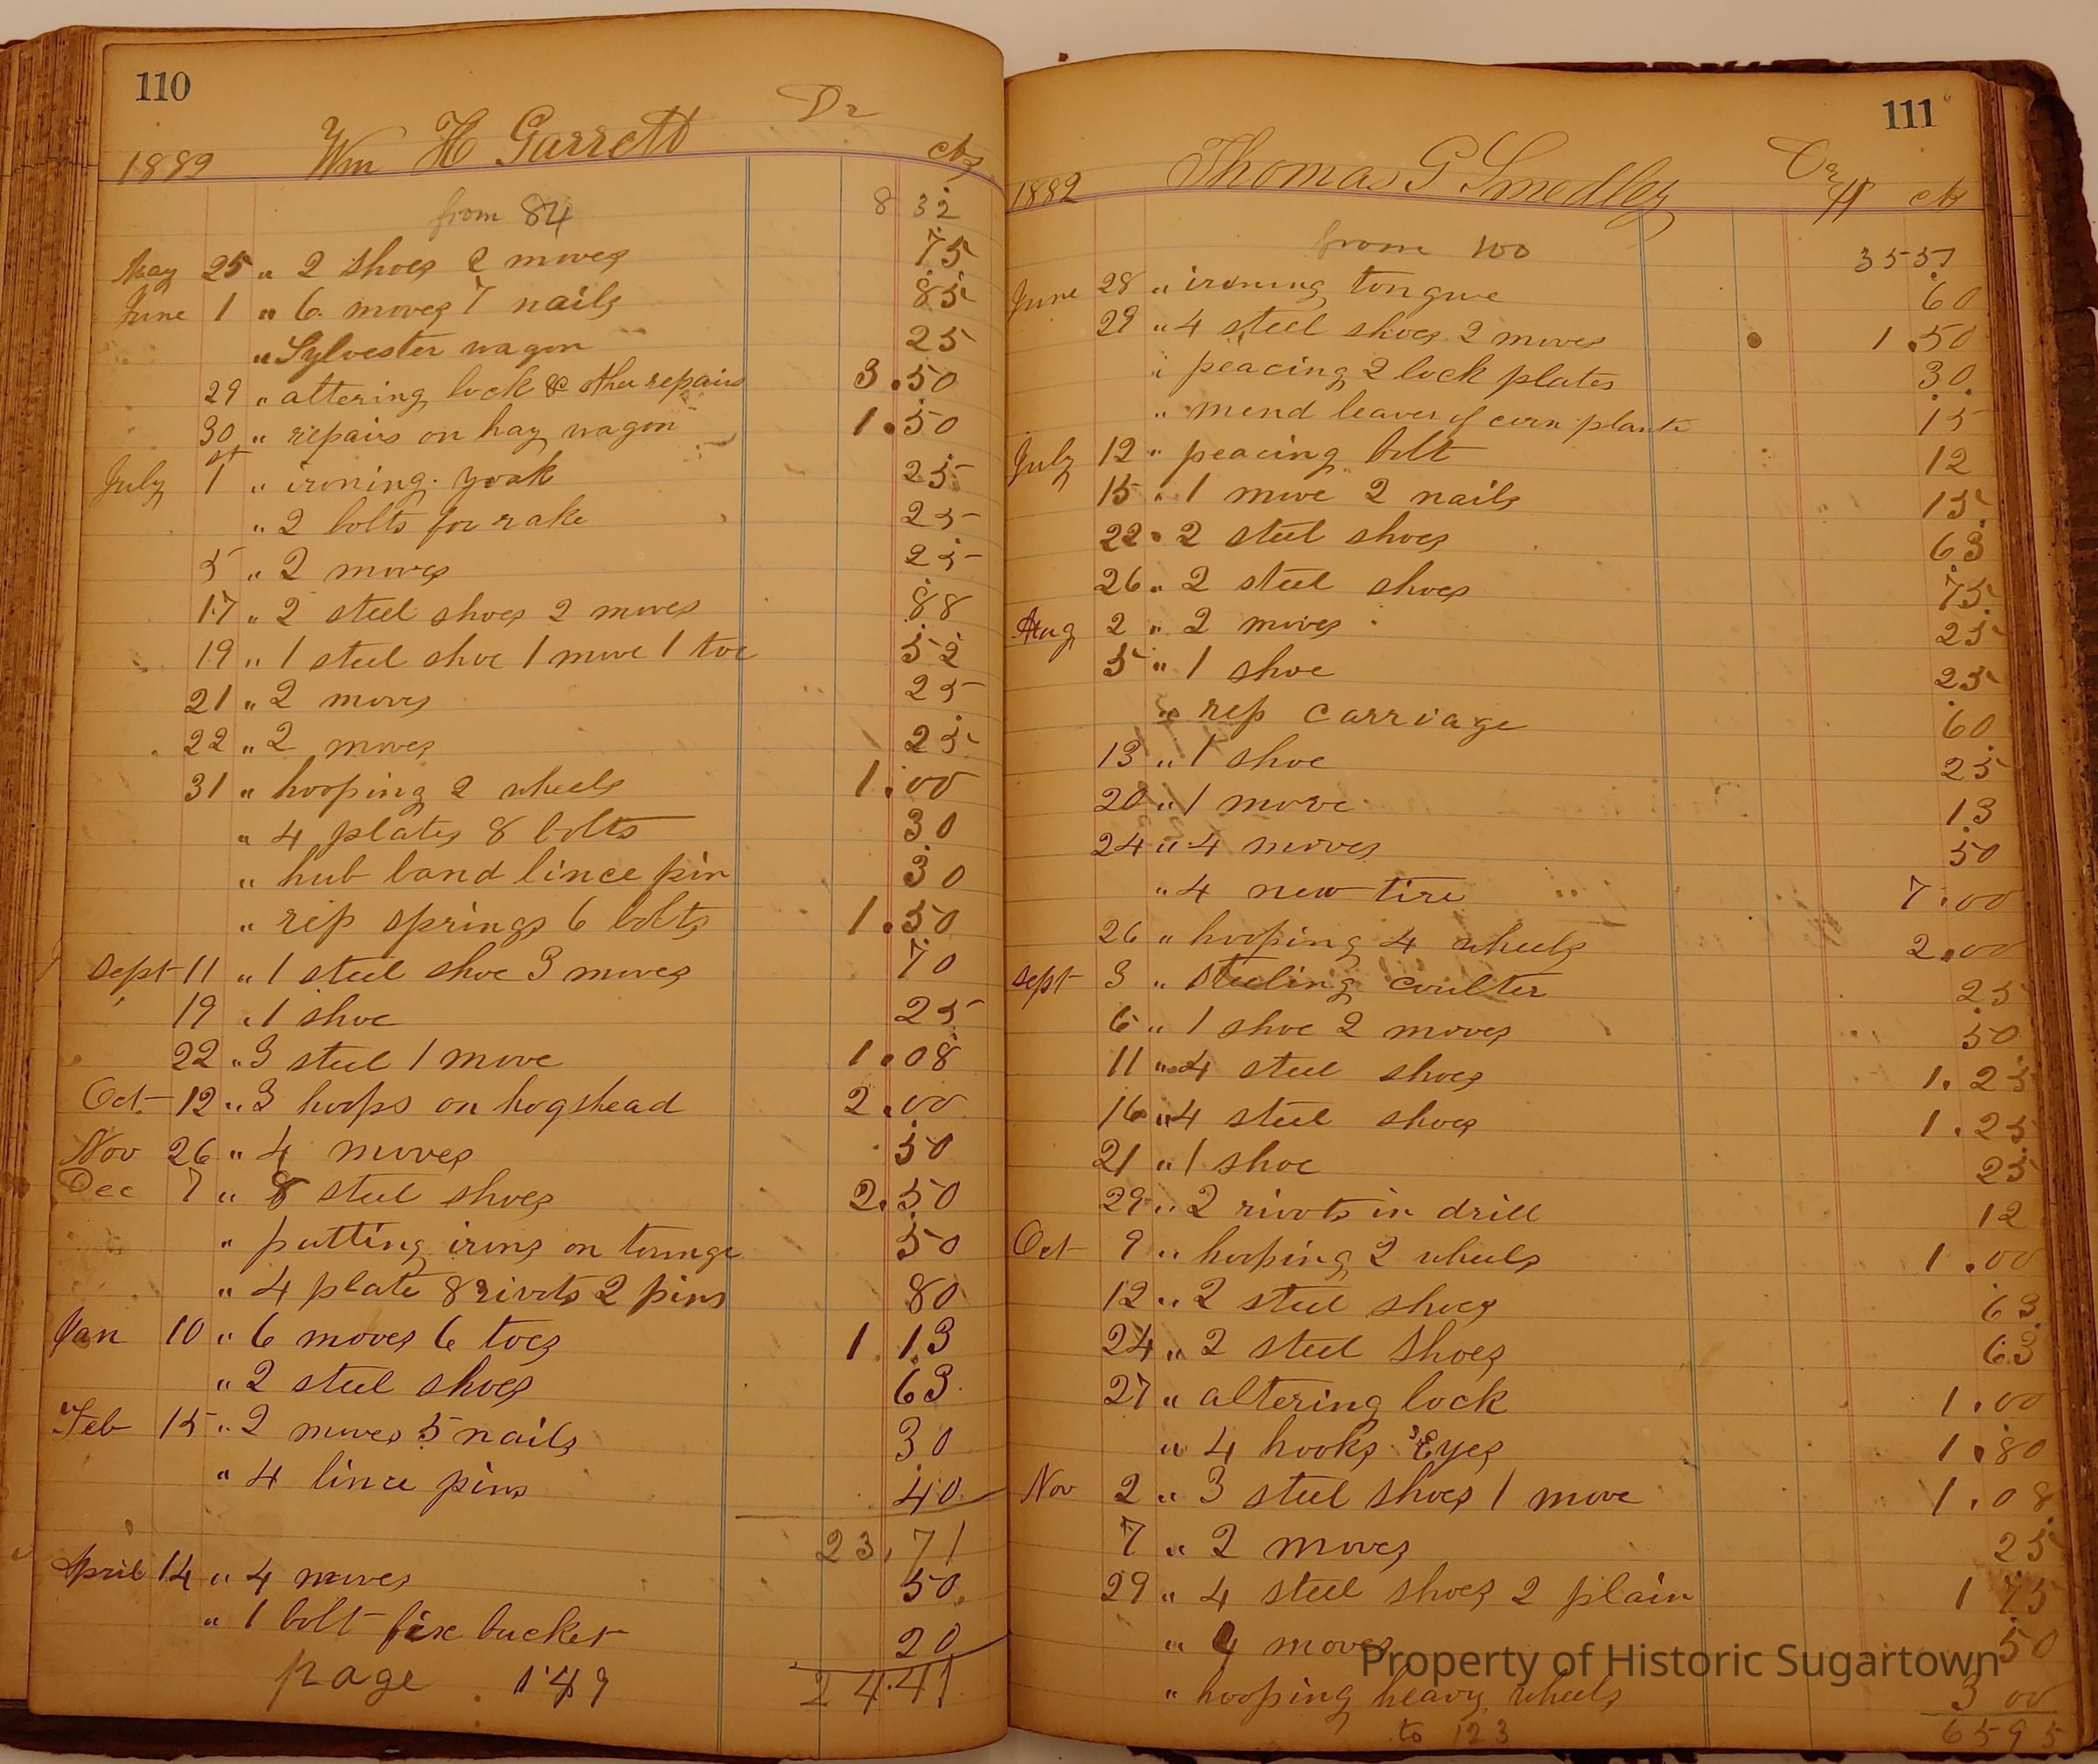 110
Dr
1889 Wm H Garrett cts
from 84 8 32
May 25 " 2 shoes 2 moves 75
June 1 " 6 moves 7 nails 85
" Sylvester wagon 25
29 " altering lock & other repairs 3.50
30 " repairs on hay wagon 1.50
July 1st " ironing yoak 25
" 2 bolts for rake 25
5 " 2 moves 25
17 " 2 steel shoes 2 moves 88
19 " 1 steel shoe 1 move 1 toe 52
21 " 2 moves 25
22 " 2 moves 25
31 " hooping 2 wheels 1.00
" 4 plates 8 bolts 30
" hub band lince pin 30
" rep springs 6 bolts 1.50
Sept 11 " 1 steel shoe 3 moves 70
19 " 1 shoe 25
22 " 3 steel 1 move 1.08
Oct 12 " 3 hoops on hogshead 2.00
Nov 26 " 4 moves 50
Dec 7 " 8 steel shoes 2.50
" putting irons on tounge 50
" 4 plate 8 rivots 2 pins 80
Jan 10 " 6 moves 6 toes 1.13
" 2 steel shoes 63
Feb 15 " 2 moves 5 nails 30
" 4 lince pins 40
23.71
April 14 " 4 moves 50
" 1 bolt fix bucket 20
page 149 24.41
111
1889 Thomas G Smedley Dr $ cts
from 100 35 57
June 28 " ironing tongue 60
29 " 4 steel shoes 2 moves 1.50
" peacing 2 lock plates 30
" mend leaver of corn plante 15
July 12 " peacing bolt 12
15 " 1 move 2 nails 15
22 " 2 steel shoes 63
26 " 2 steel shoes 75
Aug 2 " 2 moves 25
5 " 1 shoe 25
" rep carriage 60
13 " 1 shoe 25
20 " 1 move 13
24 " 4 moves 50
" 4 new tire 7.00
26 " hooping 4 wheels 2.00
Sept 3 " steeling coulter 25
6 " 1 shoe 2 moves 50
11 " 4 steel shoes 1.25
16 " 4 steel shoes 1.25
21 " 1 shoe 25
29 " 2 rivots in drill 12
Oct 9 " hooping 2 wheels 1.00
12 " 2 steel shoes 63
24 " 2 steel shoes 63
27 " altering lock 1.00
" 4 hooks & Eyes 1.80
Nov 2 " 3 steel shoes 1 move 1.08
7 " 2 moves 25
29 " 4 steel shoes 2 plain 1 75
" 4 moves 50
Property of Historic Sugartown
" hooping heavy wheels 3 00
to 123 65 95